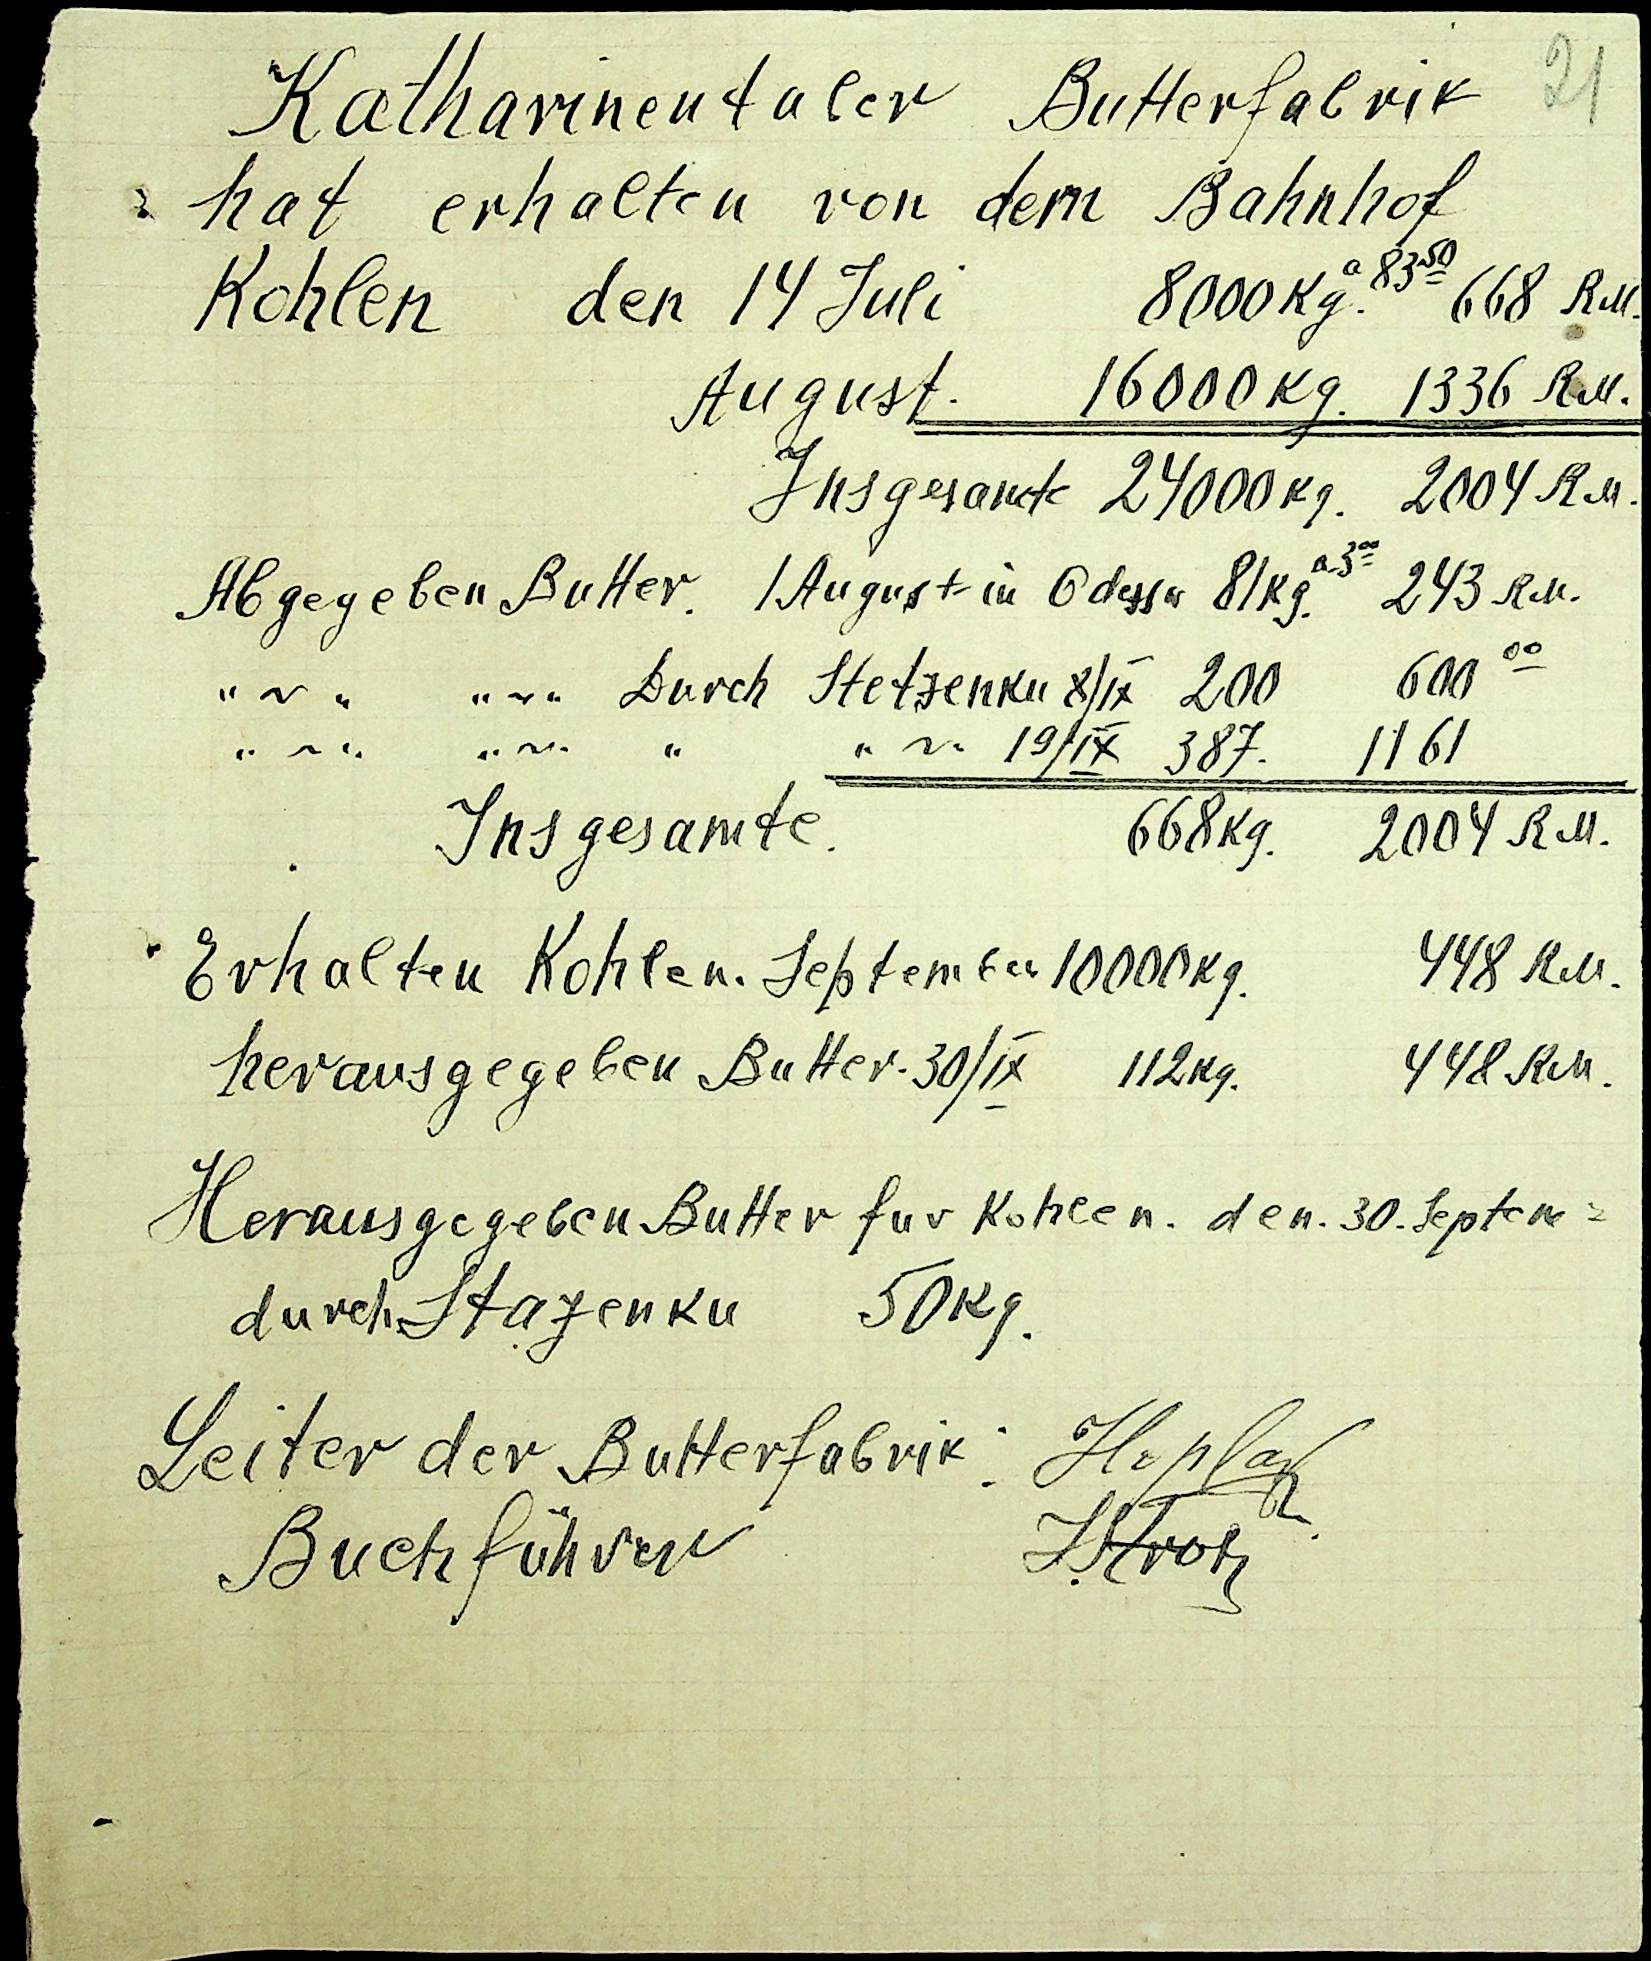 21
Katharinentaler Butterfabrik
hat erhalten von dem Bahnhof
Kohlen den 14 Juli 8000 Kg. a 83 50 668 RM.
August. 16000 Kg. 1336 RM.
Insgesamte 24000 Kg. 2004 RM.
Abgegeben Butter. 1 August in Odessa 81 Kg. a 3 00 243 RM.
" ~ " " ~ " Durch Stetzenku 8/IX 200 600 00
" ~ " " ~ " " " ~ " 19/IX 387. 1161
Insgesamte. 668 Kg. 2004 RM.
Erhalten Kohlen. September 10000 Kg. 448 RM.
herausgegeben Butter. 30/IX 112 Kg. 448 RM.
Herausgegeben Butter fur Kohlen. den. 30. Septem =
durch Stazenku 50 Kg.
Leiter der Butterfabrik:
Buchführer